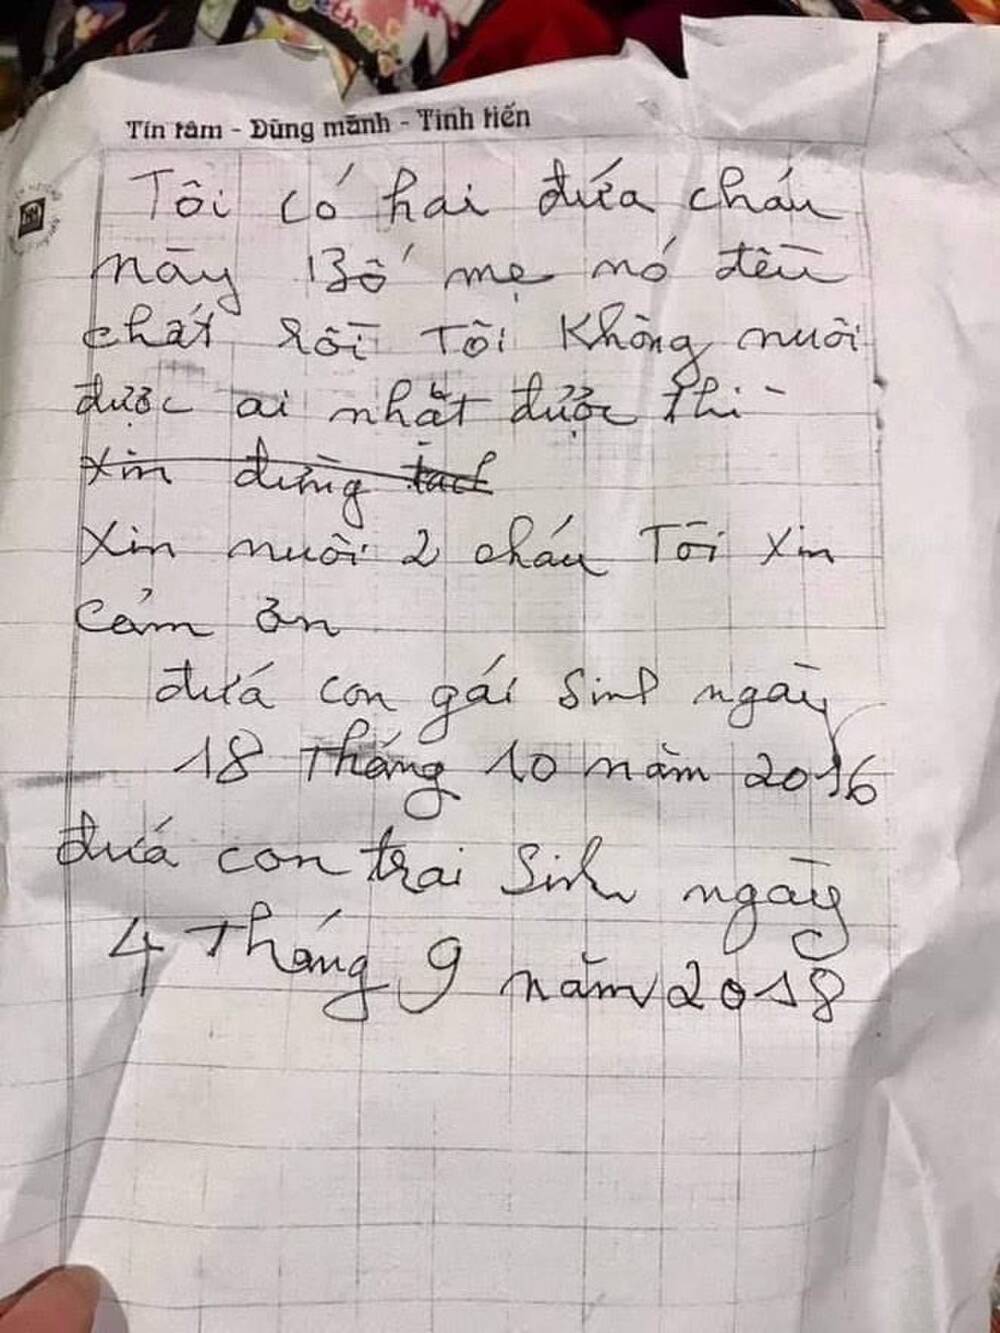 Tín tâm - Dũng mãnh - Tinh tiến
Tôi có hai đứa cháu
này Bố mẹ nó đều
chất rồi Tôi Không nuôi
được ai nhặt được thì
xin đừng tach
Xin nuôi 2 cháu Tôi xin
Cảm ơn
đứá con gái Sinh ngày
18 Tháng 10 năm 2016
đứá con trai Sinh ngày
4 Tháng 9 năm 2018